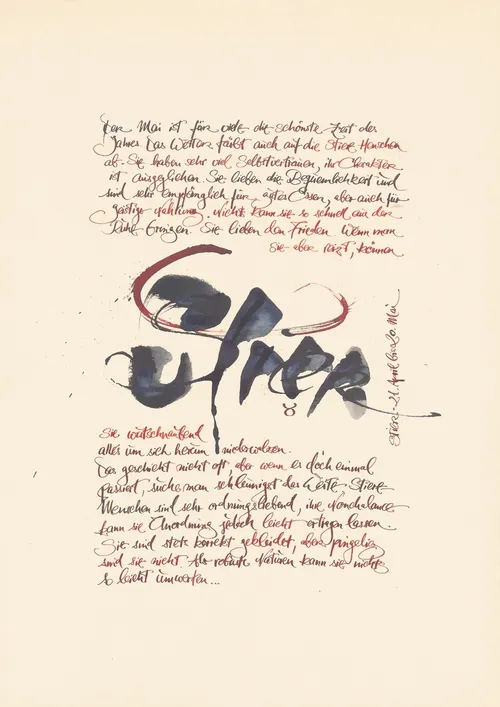 Der Mai ist für viele die schönste Zeit des
Jahres. Das Wetter färbt auch auf die Stier Menschen
ab. Sie haben sehr viel Selbstvertrauen, ihr Charakter
ist ausgeglichen. Sie lieben die Bequemlichkeit und
sind sehr empfänglich für gutes Essen, aber auch für
geistige Nahrung. Nichts kann sie so schnell aus der
Ruhe bringen. Sie lieben den Frieden. Wenn man
Sie aber reizt, können
Stier
♉
Stier - 21. April bis 20. Mai
Sie wutschnaubend
alles um sich herum niederwalzen.
Das geschieht nicht oft, aber wenn es doch einmal
passiert, suche man schleunigst das Weite. Stier
Menschen sind sehr ordnungsliebend, ihre Nonchalance
kann sie Unordnung jedoch leicht ertragen lassen.
Sie sind stets korrekt gekleidet, aber pingelig
sind sie nicht. Als robuste Naturen kann sie nichts
so leicht umwerfen...